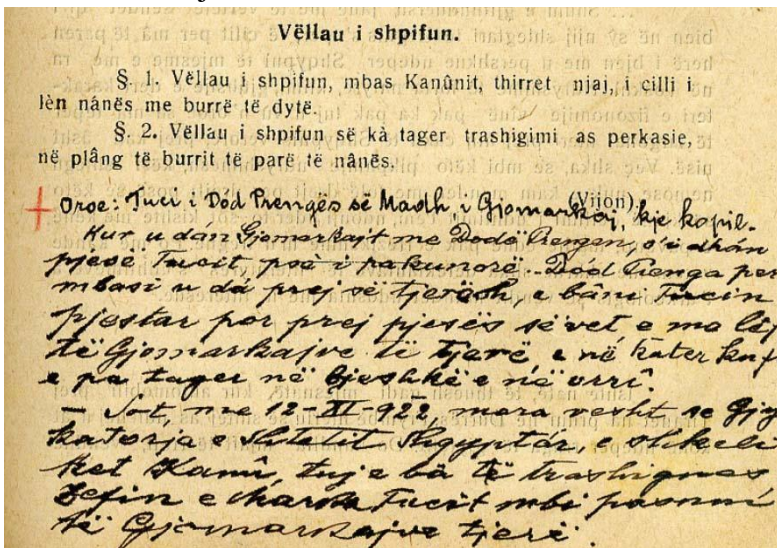 Vëllau i shpifun.
§. 1. Vëllau i shpifun, mbas Kanûnit, thirret njaj, i cilli i
lèn nánës me burrë të dytë.
§. 2. Vëllau i shpifun së kà tager trashigimi as perkasie,
në plâng të burrit të parë të nânës.
(Vijon)
+ Oroe: Tuci i Dod Prengës së Madh, i Gjomarkaj, kje kopil.
Kur u dan Gjomarkajt me Dodë Prengen, s'i dhán
pjesë Tucit psè i pakunorë. Dód Prenga per
mbasi u dá prej së tjerësh, e bâni Tucin
pjestar por prej pjesës sëvet e ma
të Gjomarkajve të tjerë e në kater
e pa tager në bjeshkë e në vrri.
- Sot me 12-XI-922 mora vesht se
katorja e Shtetit Shqyptár, e shkeli
ket Kanû, tuje bâ të trashigues
Zefin e Tucit mbi pasuni
të Gjomarkajve tjerë.